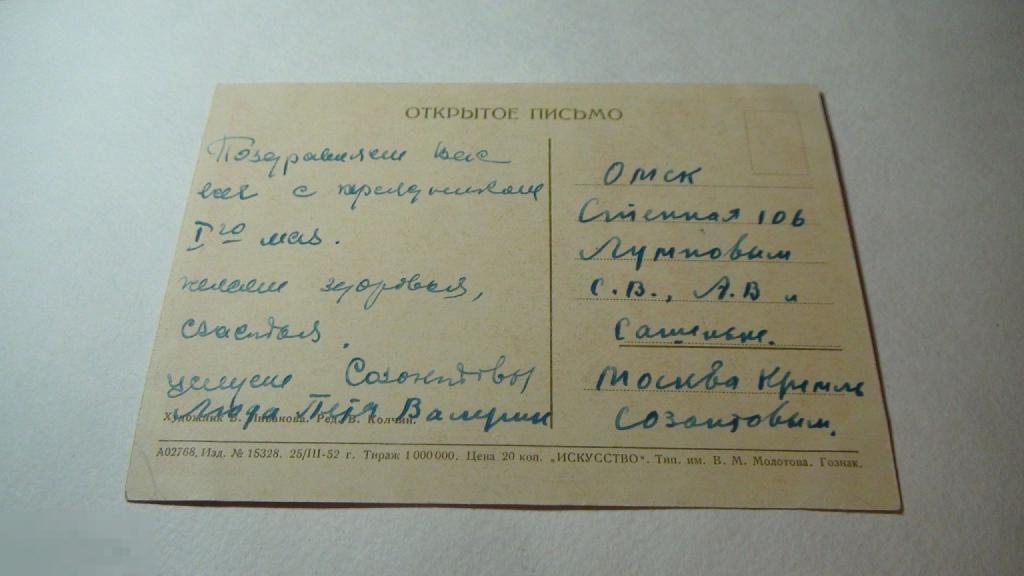 ОТКРЫТОЕ ПИСЬМО
Поздравляем Вас
всех с праздником
I го мая.
желаем здоровья,
счастья.
целуем Созонтовы
Люда Петя Валерик
Художник В. Ливанова. Ред. В. Колчин.
Омск
Степная 106
Лутковым
С.В., А.В и
Сашеньке.
Москва Кремль
Созонтовым.
А02768, Изд. № 15328. 25/III-52 г. Тираж 1 000 000. Цена 20 коп. „ИСКУССТВО". Тип. им. В. М. Молотова. Гознак.